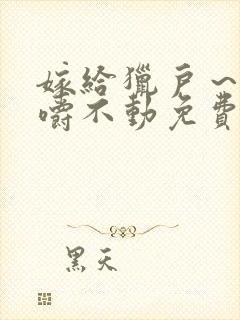 嫁给猎户～
嚼不动免费
黑天